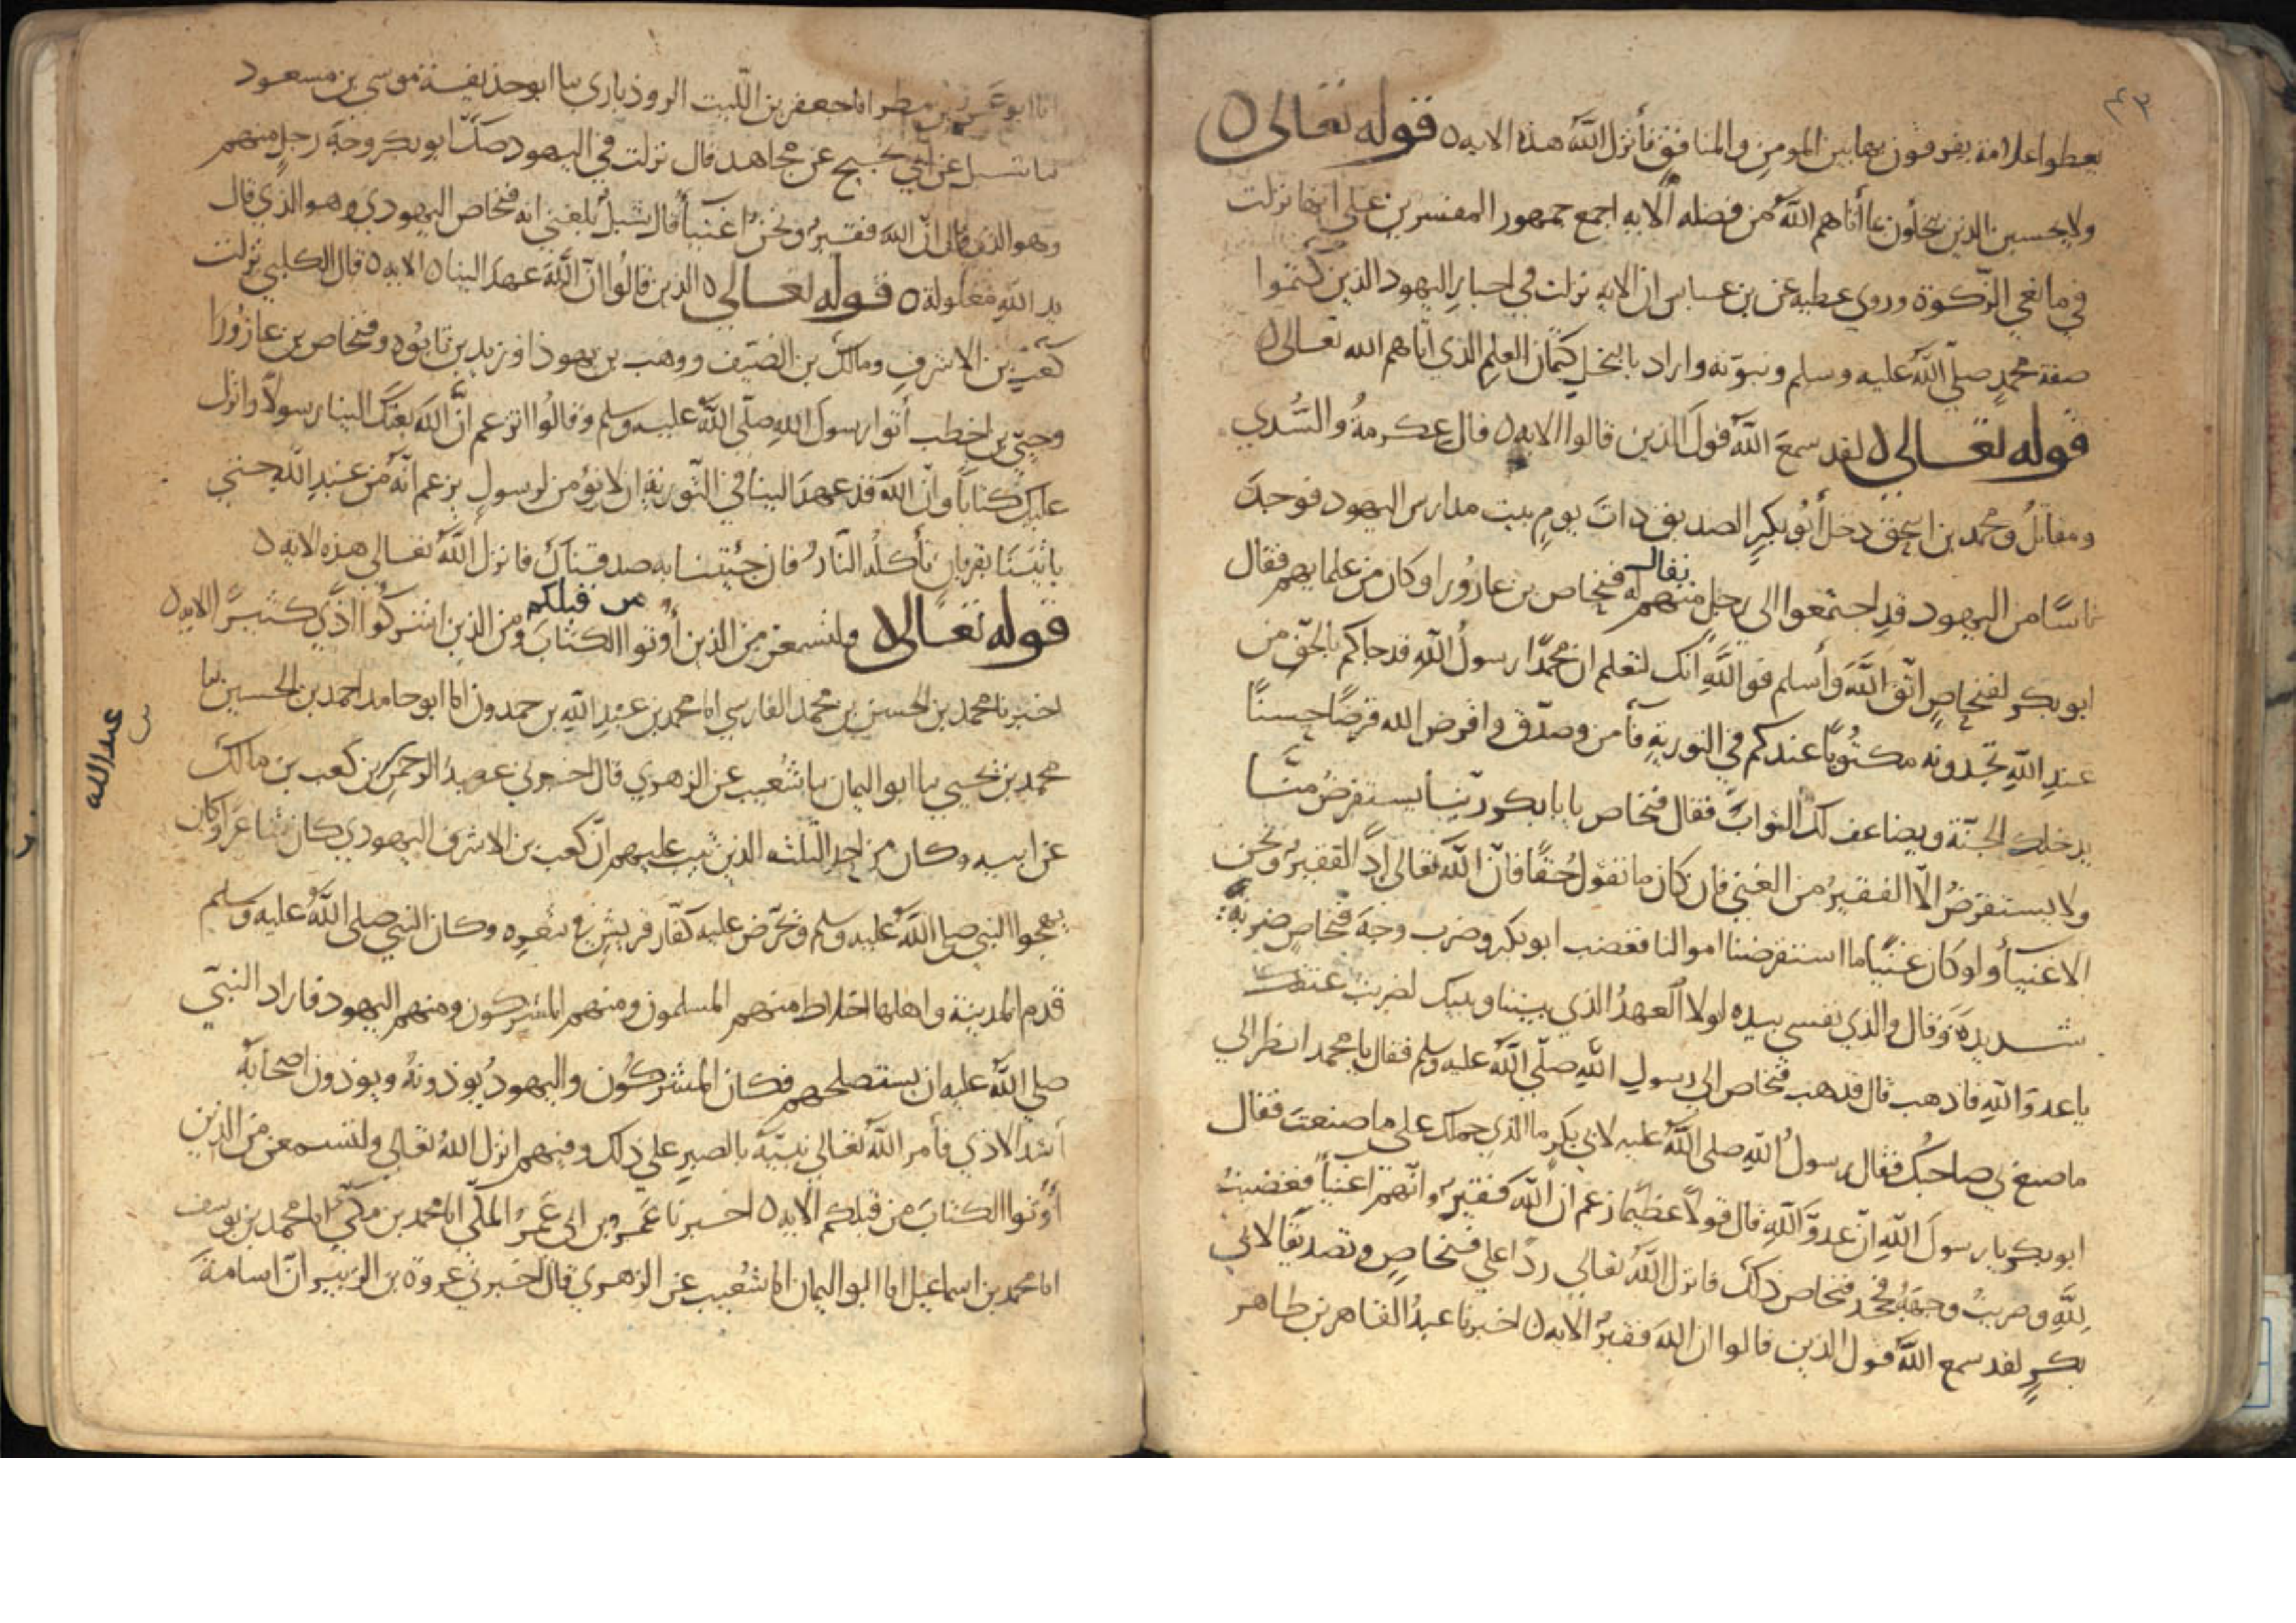 ٤٣
يعطوا علامة يفرقون بها بين المومن والمنافق فأنزل اللّٰه هذه الايه ٥ قوله تعالى ٥
ولا يحسبن الذين يبخلون بما أتاهم اللّٰه من فضله ألايه اجمع جمهور المفسرين على انها نزلت
في مانعي الزكوة وروى عطيه عن بن عباس ان الايه نزلت في احبار اليهود الذين كتموا
صفة محمدٍ صلّى اللّٰه عليه وسلم ونبوّته واراد بالبخل كتمان العلم الذي اتاهم الله تعالى ٥
قوله تعالى ٥ لقد سمعَ اللّٰه قولَ الذين قالوا الايه ٥ قال عكرمةُ والسُّدي
ومقاتلُ ومحمد بن اسحق دخل أبُو بكرٍ الصديق ذاتَ يومٍ بيت مدارس اليهود فوجدَ
ناسًا من اليهود قد اجتمعوا الى رجلٍ منهم يقال له فنحاص بن عازُورا وكان من علمايهم فقال
ابو بكر لفنحاصٍ اتّق اللّٰهَ وَأسلم فو اللّٰهِ انّك لتعلم ان محمّدًا رسولُ اللّٰهِ قد جاكم بالحقّ من
عندِ اللّٰهِ تجدونه مكتُوبًا عندكم في التوريةِ فآمن وصدّق واقرض الله قرضًا حسنًا
يدخلك الجنّة ويضاعف لك الثوابَ فقال فنحاص يا با بكر ربّنا يستقرضُ منّا
ولا يستقرضُ الّا الفقيرُ من الغني فان كان ما تقولُ حُقًا فانّ اللّٰه تعالى اذًا لفقيرُ ونحن
الاغنيأُ ولو كان غنيًّا ما استقرضنا اموالنا فغضب ابو بكر وضرب وجهَ فنحاصٍ ضربةً
شديدةً وَقال والذي نفسي بيده لولا العهدُ الذي بيننا وبينك لضربتُ عنقك
يا عدوّ اللّٰهِ فاذهب قال فذهب فنحاص الى رسول اللّٰهِ صلّى اللّٰه عليه وسلم فقال يا محمد انظر الى
ما صنع بي صاحبُك فقال رسولُ اللّٰهِ صلى اللّٰه عليه لابي بكرٍ ما الذي حملك على ما صنعتَ فقال
ابو بكر يا رسولَ اللّٰهِ انّ عدوَّ اللّٰهِ قال قولًا عظيمًا زعم ان اللّٰه فقيرٌ وانّهم اغنيأُ فغضبتُ
للّٰهِ وضربتُ وجهَهُ فجحد فنحاص ذلك فانزل اللّٰهُ تعالى ردًا على فنحاصٍ وتصديقًا لابي
بكرٍ لقد سمع اللّٰه قول الذين قالوا ان اللّٰهَ فقيرٌ الايه ٥ اخبرنا عبدُ القاهر بن طاهر
انا ابو عمرو بن مطر انا جعفر بن اللّيث الروذباري نا ابو حذيفة موسى بن مسعود
نا شبل عن ابي نجيح عن مجاهد قال نزلت في اليهود صكّ ابو بكر وجهَ رجلٍ منهم
وهو الذي قال انّ اللّٰه فقيرٌ ونحنُ اغنيأُ قال شبلُ بلغني انه فنحاص اليهودي وهو الذي قال
يد اللّٰهِ مغلولة ٥ قوله تعالى ٥ الذين قالُوا انّ اللّٰهَ عهدَ الينا ٥ الايه ٥ قال الكلبي نزلت
كعبِ بن الاشرفِ ومالك بن الضيف ووهب بن يهوذا وزيد بن تابُوه وفنحاص بن عازُورا
وحيّي بن اخطب أتوا رسولَ اللّٰهِ صلّى اللّٰه عليه وسلم وقالُوا اتزعم انَّ اللّٰهَ بعثك الينا رسولًا وانزل
عليك كتابًا وانّ اللّٰهَ قد عهدَ الينا في التّورية ان لا نؤمن لرسولٍ يزعم انّه من عندِ اللّٰهِ حتى
ياتيَنَا بقربانٍ تأكلُه النّارُ فان جئيتنا به صدقناك فانزل اللّٰهُ تعالى هذه الاية ٥
قوله تعالى ٥ ولتسمعن من الذين أُوتوا الكتابَ من قبلكم ومن الذين اشركُوا اذًى كثيرًا الايه ٥
اخبرنا محمد بن الحسن بن محمد الفارسي انا محمد بن عبدِ اللّٰهِ بن حمدون انا ابو حامد احمد بن الحسين نا
محمد بن يحيى نا ابو اليمان نا شُعيب عن الزهري قال اخبرني عبدُ الرحمن بن كعب بن مالك
عن ابيه وكان من احد الثلثه الذين تيب عليهم انّ كعب بن الاشرف اليهودي كان شاعرًا وكان
يهجوا النبي صلى اللّٰه عليه وسلم ويحرّض عليه كفّار قريشٍ في شعرِه وكان النبي صلى اللّٰه عليه وسلم
قدم المدينة واهلها اخلاط منهم المسلمون ومنهم المشركون ومنهم اليهود فاراد النبيّ
صلى اللّٰه عليه ان يستصلحهم فكان المشركُون واليهودُ يُوذونهُ ويوذون اصحابَهُ
أشد الاذى فأمر اللّٰهُ تعالى نبيّهُ بالصبرِ على ذلك وفيهم انزل اللّٰهُ تعالى ولتسمعن من الذين
أُوتُوا الكتابَ من قبلكم الايه ٥ اخبرنا عَمرو بن ابى عَمرُو المكّي انا محمد بن مكّي انا محمد بن يوسف
انا محمد بن اسماعيل انا ابو اليمان انا شُعيب عن الزهري قال اخبرني عروة بن الزبير انّ اسامة
عبدالله